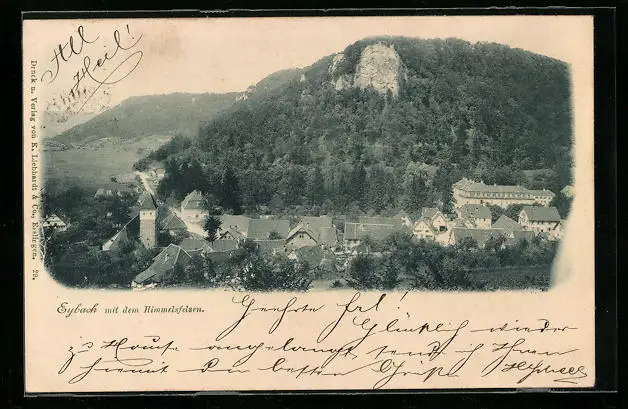 All Heil!
Druck u. Verlag von K. Liebhardt & Co., Esslingen. 29.
Eybach mit dem Himmelsfelsen.
Geehrte Frl! Glücklich wieder
zu Hause angelangt, send ich Ihnen
hiemit den besten Gruß